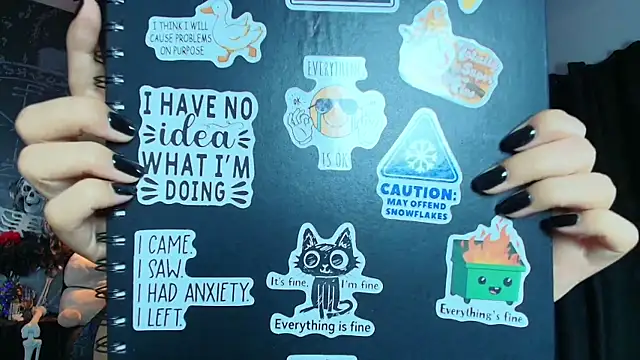 I THINK I WILL
CAUSE PROBLEMS
ON PURPOSE
EVERYTHING
OK
IS OK
I HAVE NO
idea
WHAT I'M
DOING
CAUTION:
MAY OFFEND
SNOWFLAKES
I CAME.
I SAW.
I HAD ANXIETY.
I LEFT.
It's fine. I'm fine
Everything is fine
Everything's fine